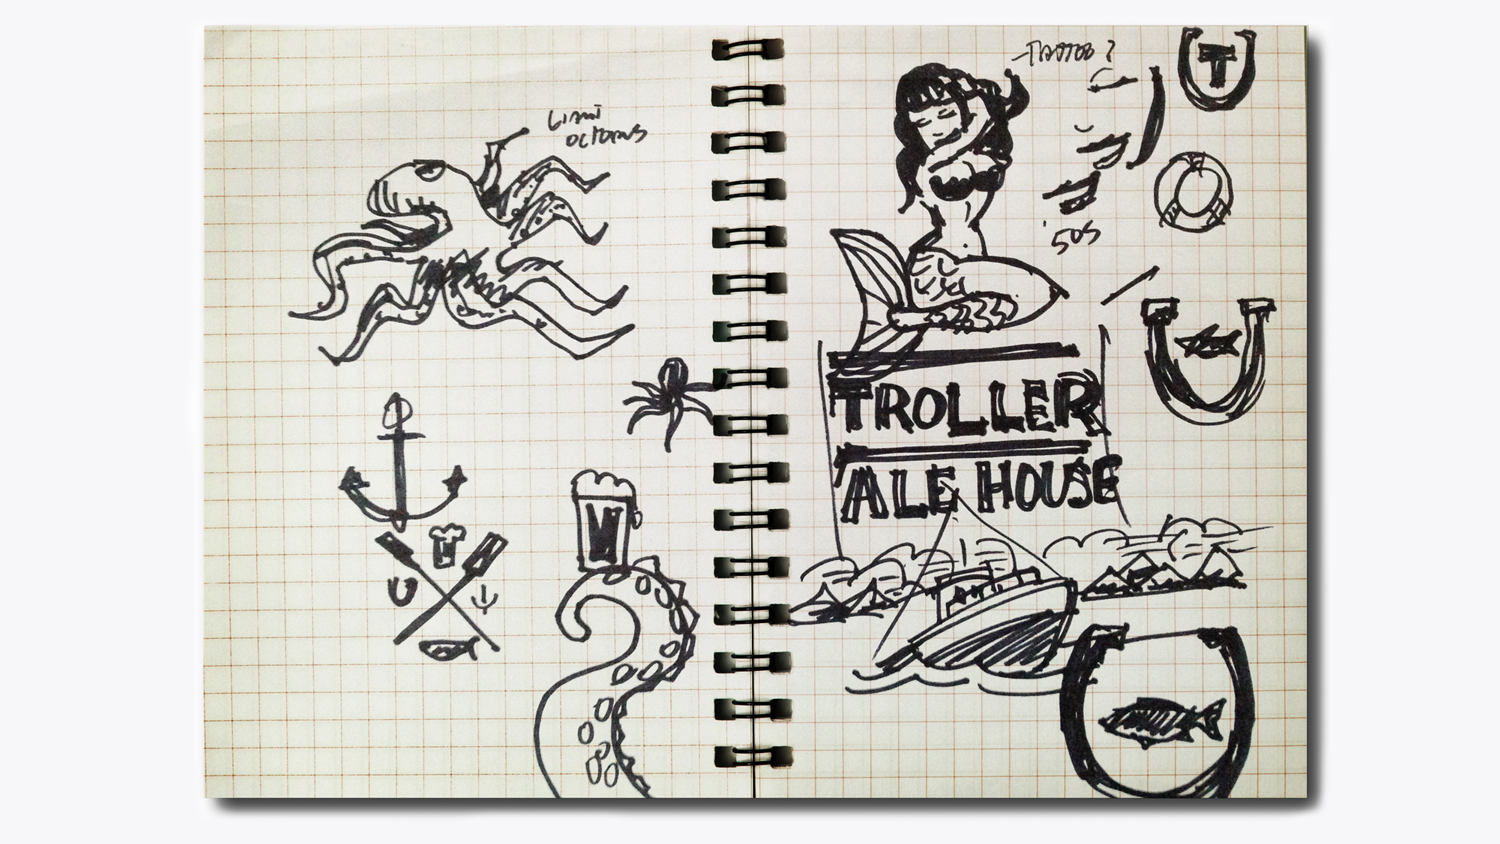 GIANT
OCTOPUS
TATTOO?
T
'50S
TROLLER
ALE HOUSE